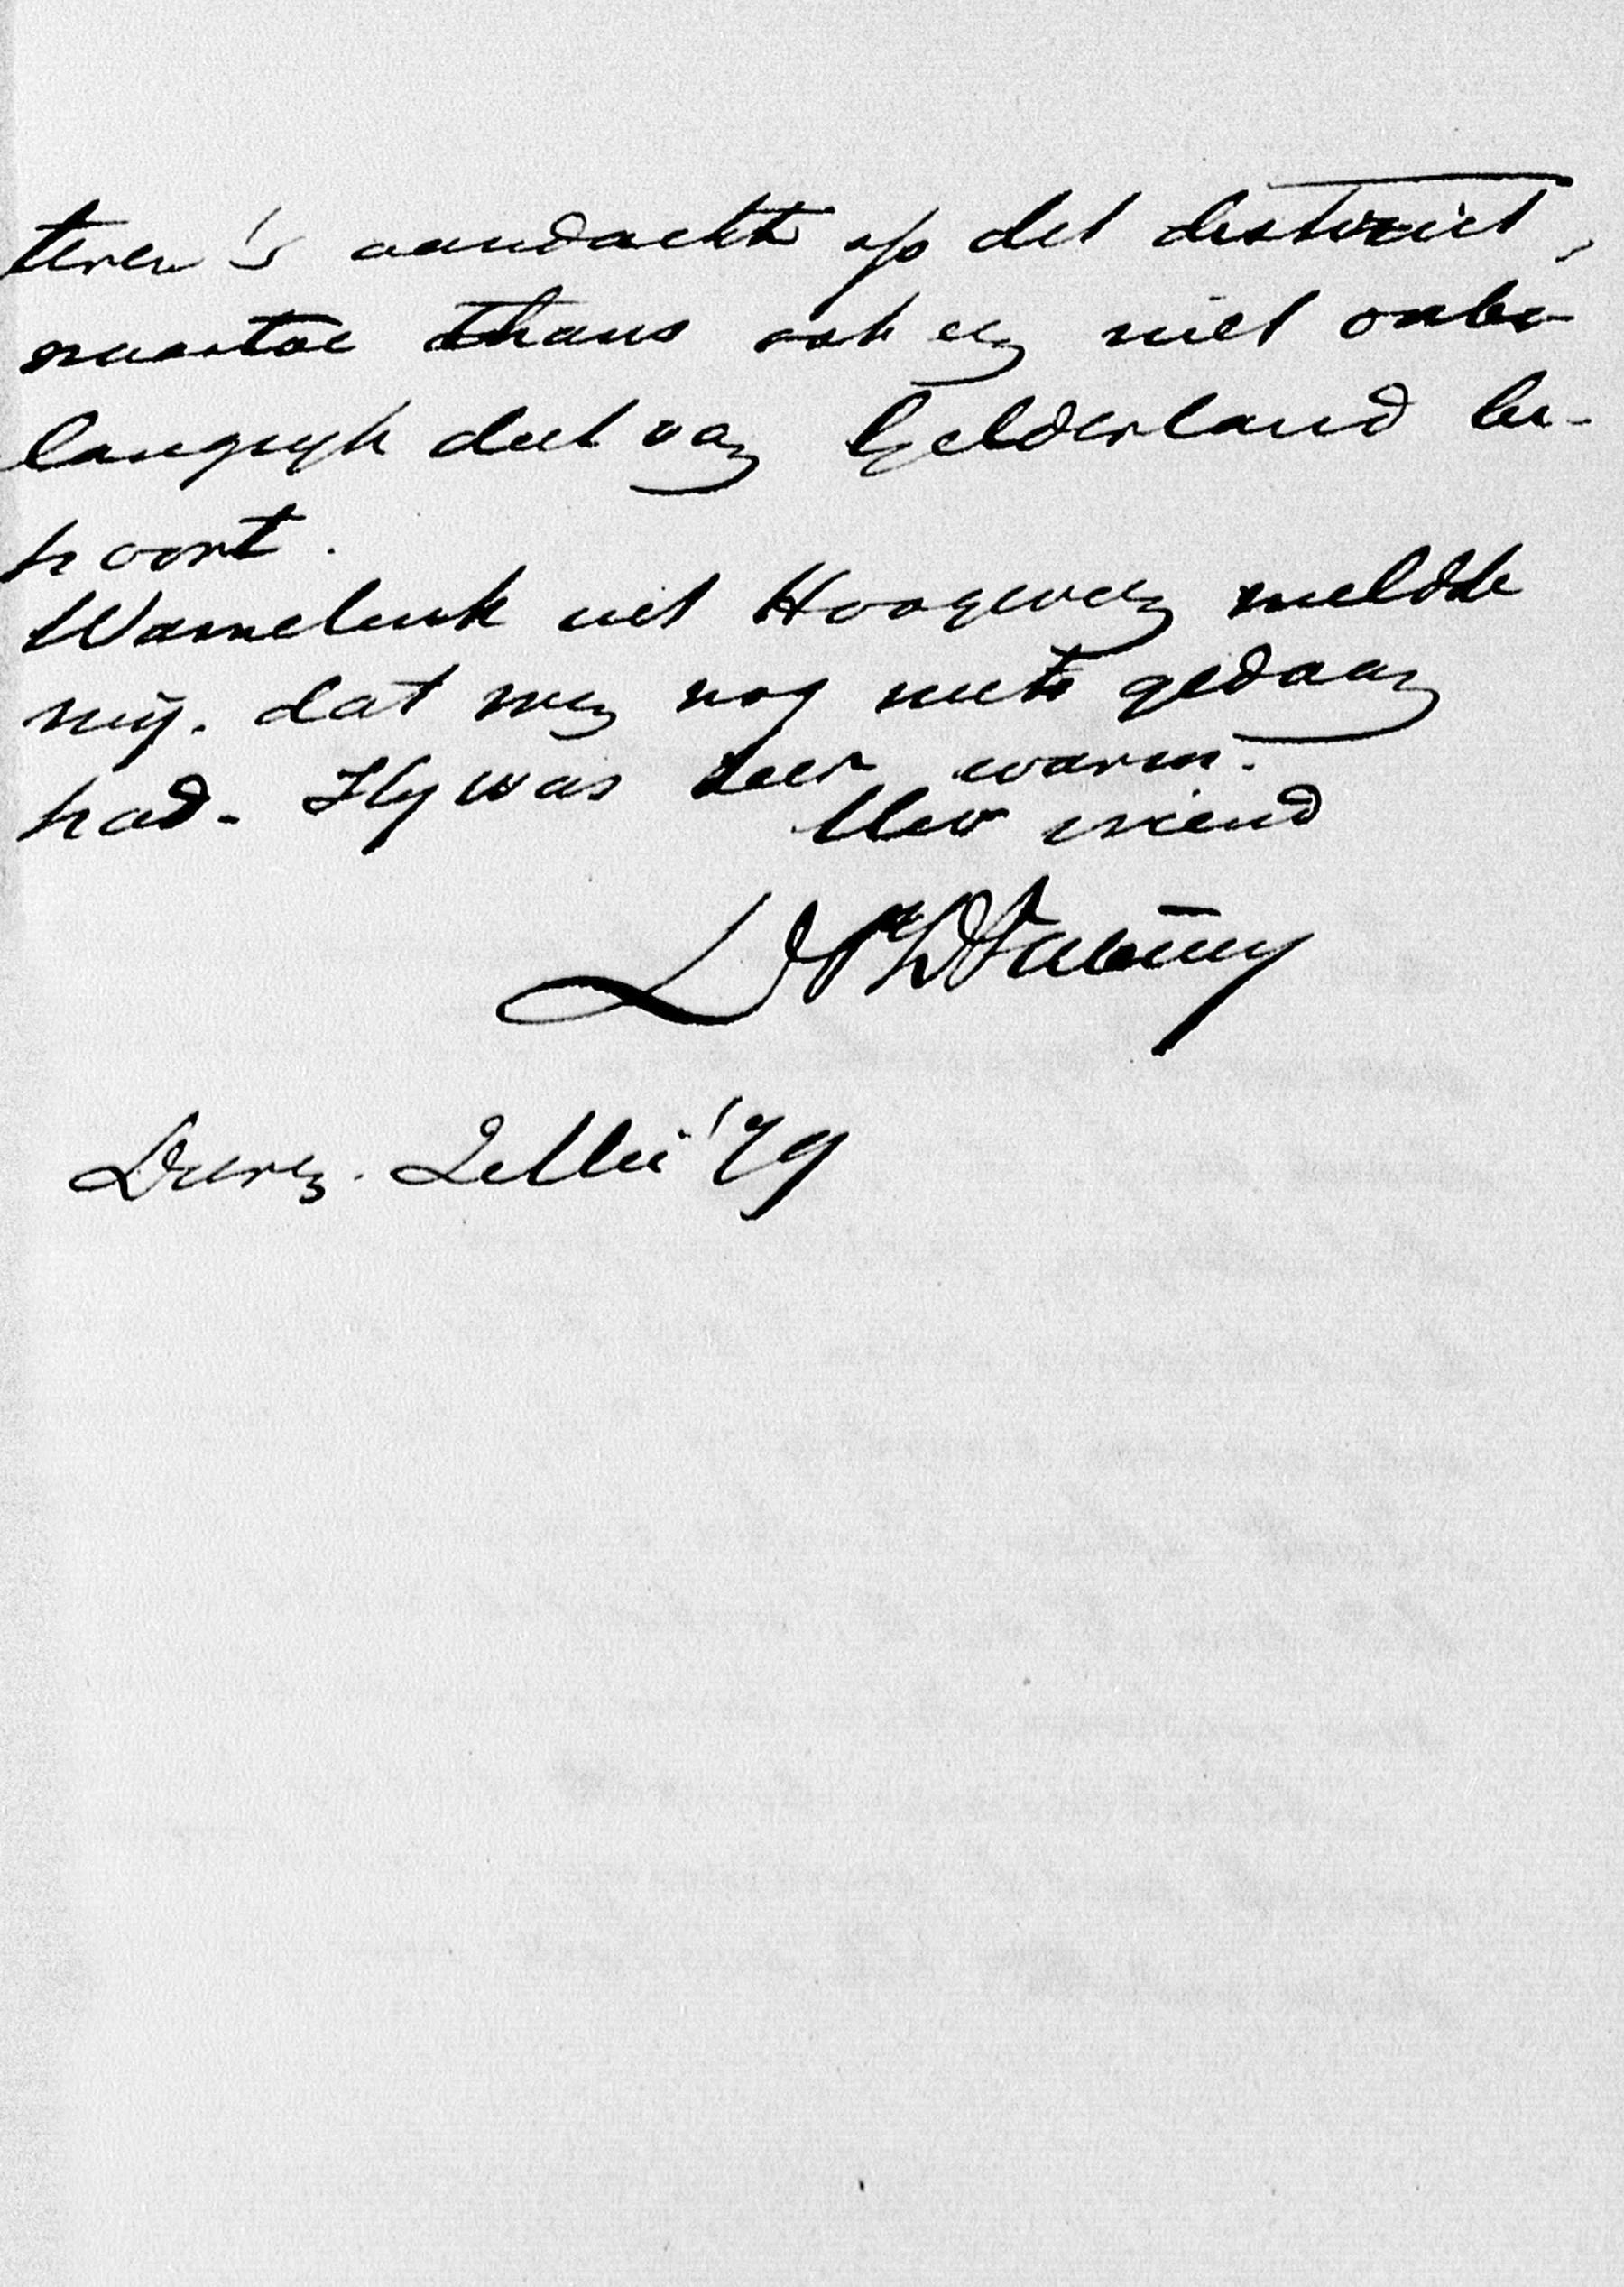 teren 's aandacht op dit district,
waartoe thans ook een niet onbe-
langrijk deel van Gelderland be-
hoort.
Wamelink uit Hoogeveen meldde
mij. dat men nog niets gedaan
had. Hij was zeer warm.
Uw vriend
LWCKDFabius
Deven. 2 Mei '79